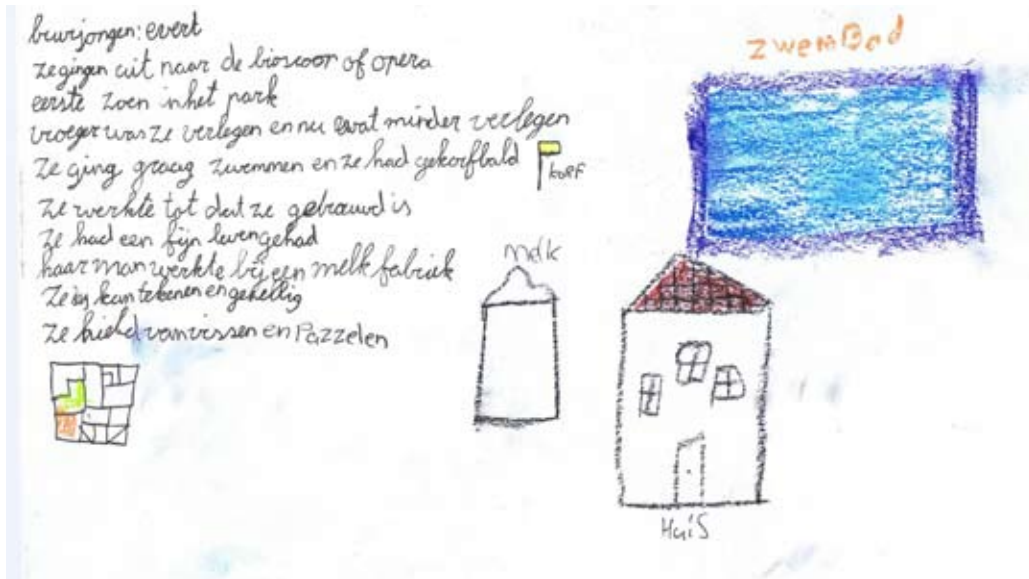 buurjongen: evert
ze gingen uit naar de bioscoor of opera
eerste zoen in het park
vroeger was ze verlegen en nu wat minder verlegen
ze ging graag zwemmen en ze had gekorfbald
korf
ze werkte tot dat ze getrouwd is
ze had een fijn leven gehad
haar man werkte bij een melk fabriek
kan tekenen en gezellig
ze hield van vissen en Pazzelen
zwemBad
melk
HuiS